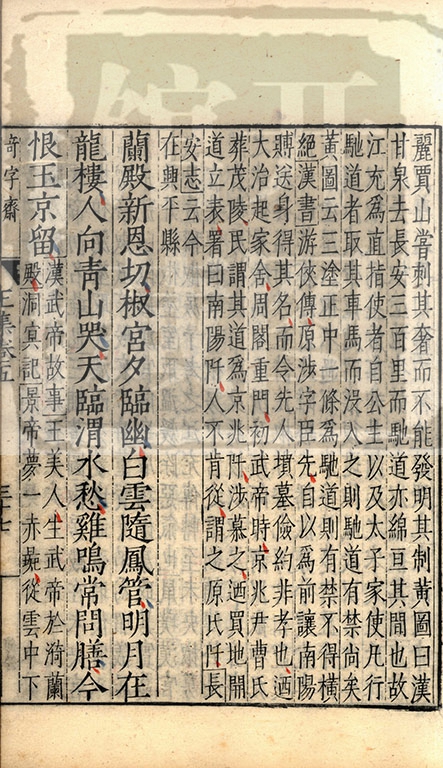 麗賈山嘗刺其奢而不能發明其制黃圖曰漢
甘泉去長安三百里而馳道亦綿亘其間也故
江充爲直指使者自公主以及太子家使凡行
馳道者取其車馬而没入之則馳道有禁尚矣
黃圖云三塗正中一條爲馳道則有禁不得橫
絕漢書游俠傳原涉字巨先自以爲前讓南陽
賻送身得其名而令先人墳墓儉約非孝也迺
大治起家舍周閣重門初武帝時京兆尹曹氏
葬茂陵民謂其道爲京兆阡涉慕之迺買地開
道立表署曰南陽阡人不肯從謂之原氏阡長
安志云今
在興平縣
蘭殿新恩切椒宮夕臨幽白雲隨鳳管明月在
龍樓人向青山哭天臨渭水愁雞鳴常問膳今
恨玉京留漢武帝故事王美人生武帝於漪蘭
殿洞冥記景帝夢一赤彘從雲中下
奇字齋
上集卷五
三十七